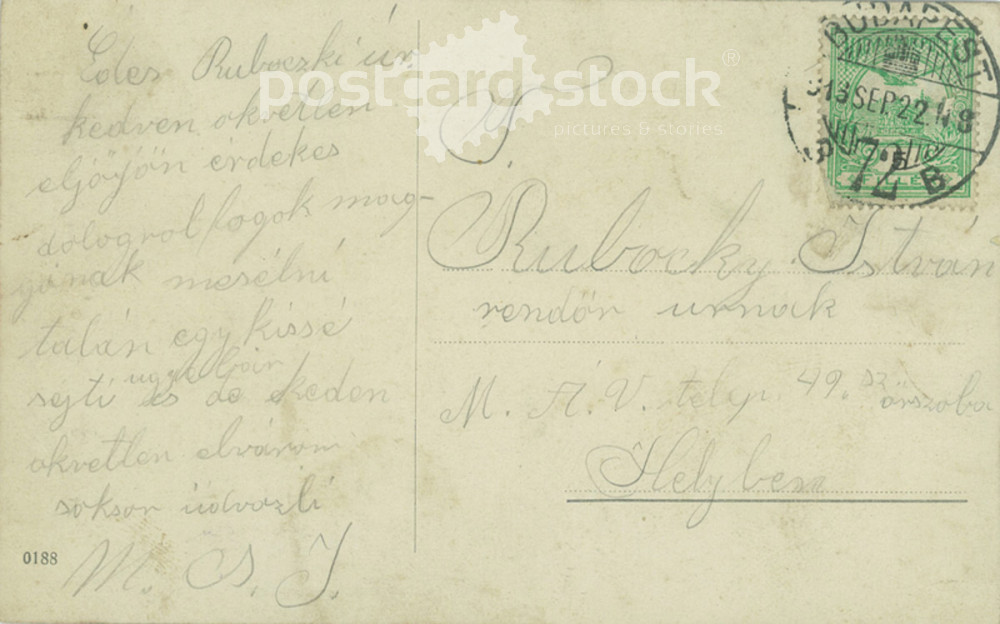 Édes Ruboczki úr
kedven okvetlen
eljöjön érdekes
dologrol fogok mag-
gának mesélni
talán egy kissé
sejti is de kedden
okvetlen elvárom
sokszor üdvözli
M. S. J.
0188
postcard stock®
pictures & stories
BUDAPEST
913 SEP 22
72
B
FILLÉR
Rubocky István
rendőr urnak
M. Á. V. telep. 49. sz őrszoba
Helyben